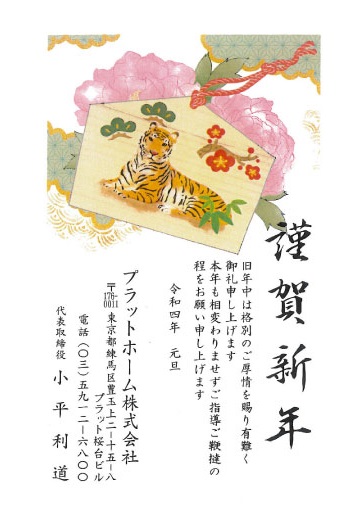 謹賀新年
旧年中は格別のご厚情を賜り有難く
御礼申し上げます
本年も相変わりませずご指導ご鞭撻の
程をお願い申し上げます
令和四年 元旦
プラットホーム株式会社
〒176-0011 東京都練馬区豊玉上二-十五-八
プラット桜台ビル
電話(〇三)五九一二-六八〇〇
代表取締役 小平利道